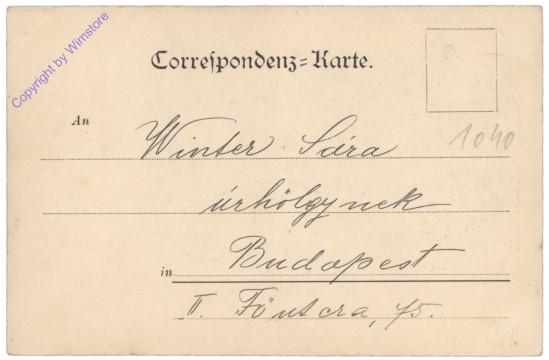 Copyright by Wimstore
Correspondenz-Karte.
An
Winter Sára
1040
úrhölgynek
in Budapest
II. Főutcza, 75.